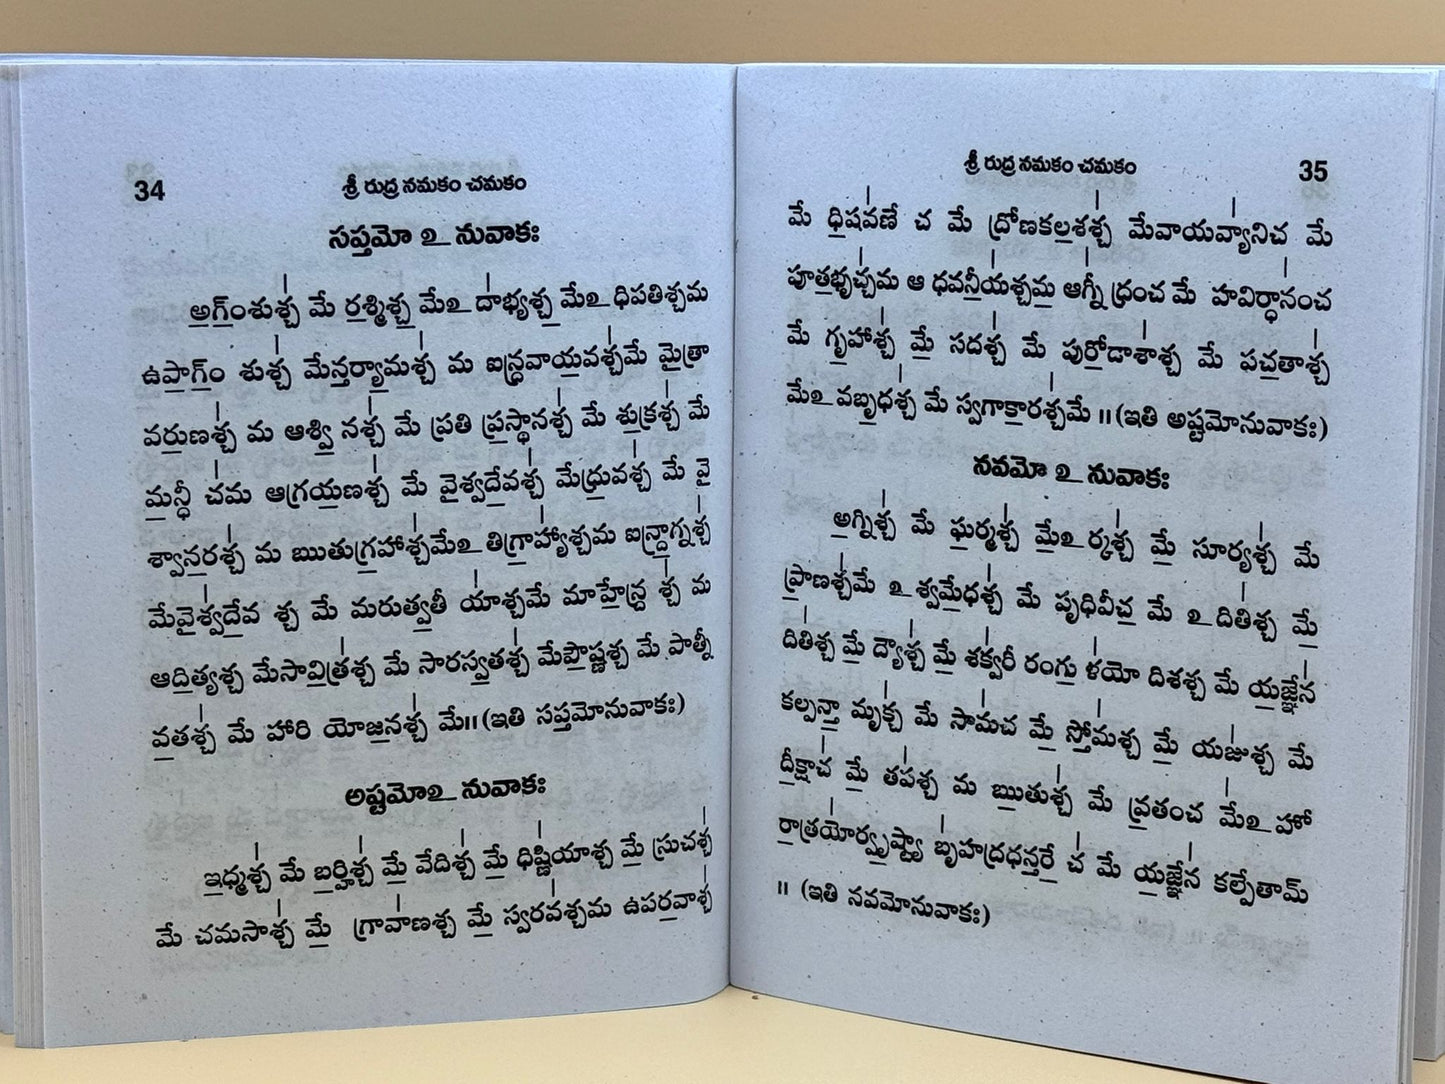 34
శ్రీ రుద్ర నమకం చమకం
సప్తమో ఽ నువాకః
అ॒గ్॒ంశుశ్చ॑ మే ర॒శ్మిశ్చ॒ మేఽ దా॑భ్యశ్చ॒ మేఽ ధిపతిశ్చమ
ఉపా॒గ్॒ం శుశ్చ॑ మేన్త॒ర్యా॒మశ్చ॑ మ ఐన్ద్రవాయ॒వశ్చ॑మే మై॒త్రా
వరు॒ణశ్చ॑ మ ఆశ్వి॒ నశ్చ॑ మే ప్రతి ప్ర॒స్థానశ్చ॑ మే శు॒క్రశ్చ॑ మే
మ॒న్థీ చ॑మ ఆగ్రయ॒ణశ్చ॑ మే వైశ్వదే॒వశ్చ॑ మేధ్రు॒వశ్చ॑ మే వై
శ్వాన॒రశ్చ॑ మ ఋతుగ్ర॒హాశ్చ॑మేఽ తిగ్రా॒హ్యా॑శ్చమ ఐన్ద్రా॒గ్నశ్చ॑
మేవైశ్వ॑దే॒వ శ్చ మే మరుత్వ॒తీ యా॑శ్చమే మాహే॒న్ద్ర శ్చ॑ మ
ఆది॒త్యశ్చ మేసావి॒త్ర॑శ్చ మే సారస్వ॒తశ్చ॑ మేపౌ॒ష్ణశ్చ॑ మే పాత్నీ
వ॒తశ్చ॑ మే హారి యోజ॒నశ్చ॑ మే॥(ఇతి సప్తమోనువాకః)
అష్టమోఽ నువాకః
ఇ॒ధ్మశ్చ॑ మే బ॒ర్హిశ్చ॑ మే॒ వేది॑శ్చ మే॒ ధిష్ణి॑యాశ్చ మే॒ స్రుచశ్చ॑
మే చమసాశ్చ॑ మే॒ గ్రావా॑ణశ్చ మే॒ స్వరవ॑శ్చమ ఉపర॒వాశ్చ॑
శ్రీ రుద్ర నమకం చమకం
35
మే ధి॒షవ॑ణే చ మే ద్రోణకల॒శశ్చ॑ మేవాయవ్యా॑నిచ మే
పూత॒భృచ్చ॑మ ఆ ధవ॒నీయ॑శ్చమ॒ ఆగ్నీ॑ ధ్రంచ మే హవిర్ధానం॑చ
మే గృ॒హాశ్చ॑ మే॒ సదశ్చ॑ మే పురో॒డాశా॑శ్చ మే పచ॒తాశ్చ॑
మేఽ వబృ॒ధశ్చ॑ మే స్వగాకా॒రశ్చ॑మే ॥(ఇతి అష్టమోనువాకః)
నవమో ఽ నువాకః
అ॒గ్నిశ్చ॑ మే ఘ॒ర్మశ్చ॑ మే॒ఽ ర్కశ్చ॑ మే॒ సూర్యశ్చ॑ మే
ప్రా॒ణశ్చ॑మే ఽ శ్వమే॒ధశ్చ॑ మే పృథివీచ॒ మే ఽ దితి॑శ్చ మే॒
దితి॑శ్చ మే॒ ద్యౌశ్చ॑ మే॒ శక్వ॑రీ రంగు॒ ళ॑యో దిశశ్చ మే య॒జ్ఞేన॑
కల్పన్తా॒ మృక్చ॑ మే సామ॑చ మే॒ స్తోమ॑శ్చ మే॒ యజు॑శ్చ మే
దీ॒క్షాచ॑ మే॒ తప॑శ్చ మ ఋ॒తుశ్చ॑ మే వ్ర॒తంచ మే॒ఽ హో
రా॒త్రయో॑ర్వృ॒ష్ట్యా బృ॑హద్రధన్త॒రే చ॑ మే య॒జ్ఞేన॑ కల్పేతామ్
॥ (ఇతి నవమోనువాకః)